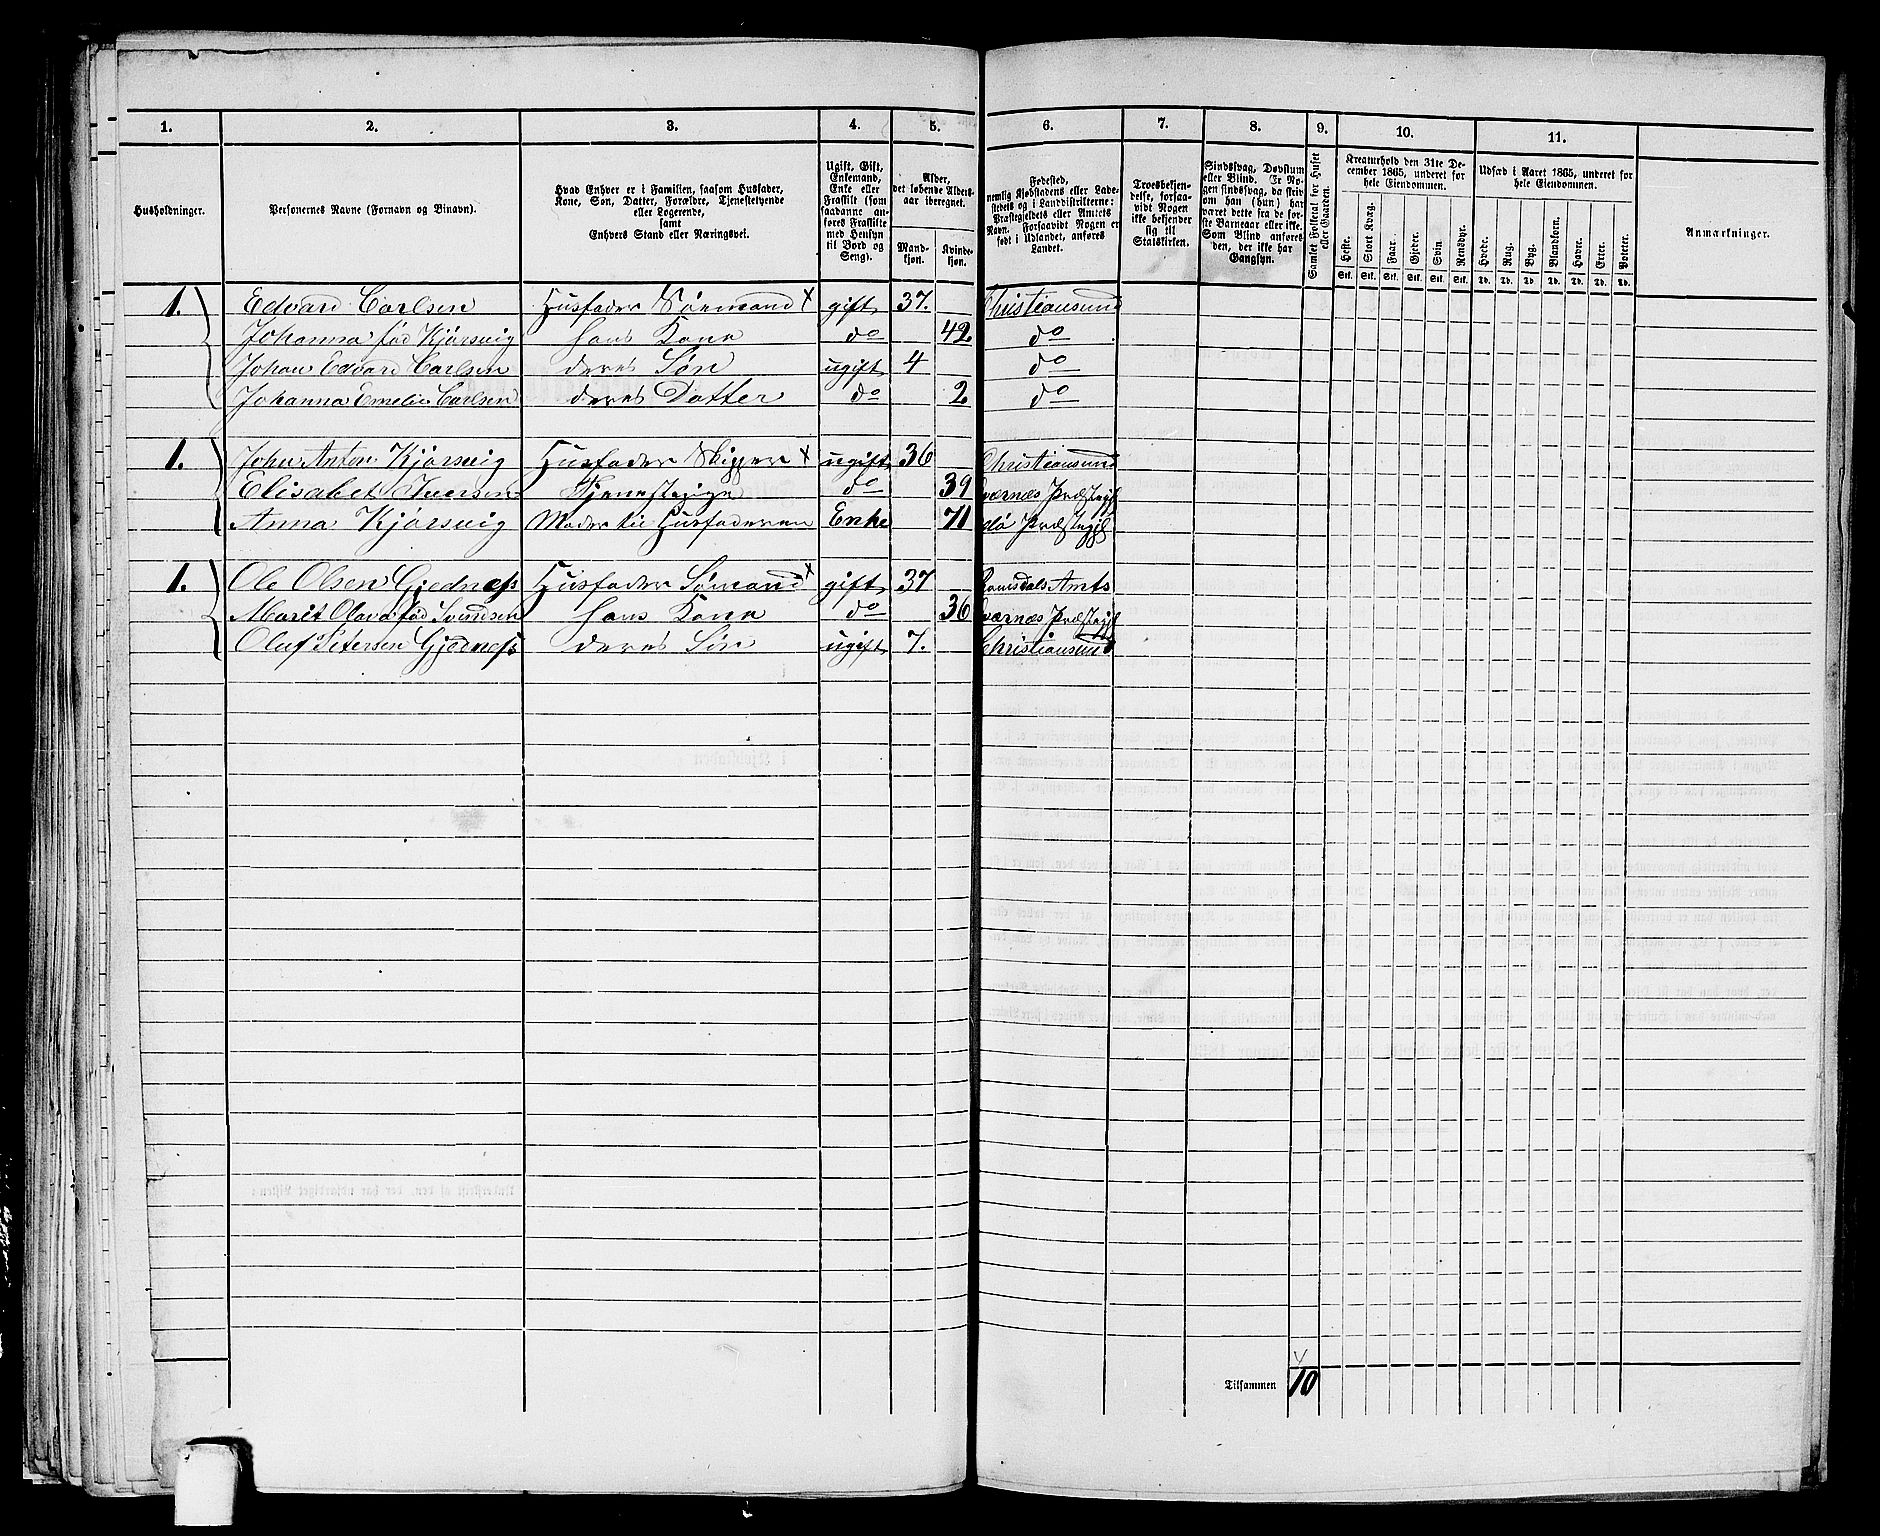 1. 2. 3. 4. 5. 6. 7. 8. 9. 10. 11.
Husholdninger.
Personernes Navne (Fornavn og Binavn).
Hvad Enhver er i Familien, saasom Husfader,
Kone, Søn, Datter, Forældre, Tjenestetyende
eller Logerende,
samt
Enhvers Stand eller Næringsvei.
Ugift, Gift,
Enkemand,
Enke eller
Fraskilt (som
saadanne an-
føres Fraskilte
med Hensyn
til Bord og
Seng).
Alder,
det løbende Alders-
aar iberegnet.
Mand-
kjøn.
Kvinde-
kjøn.
Fødested,
nemlig Kjøbstadens eller Lade-
stedets og i Landdistrikterne:
Præstegjeldets eller Amtets
Navn. Forsaavidt Nogen er
født i Udlandet, anføres
Landet.
Troesbekjen-
delse, forsaa-
vidt Nogen
ikke bekjender
sig til
Statskirken.
Sindssvag, Døvstum
eller Blind. Er No-
gen sindssvag, da skriv
om han (hun) har
været dette fra de for-
ste Barneaar eller ikke.
Som Blind anføres
den, der ikke har
Gangsyn.
Samlet Folketal for Huset
eller Gaarden.
Kreaturhold den 31te De-
cember 1865, underet for
hele Eiendommen.
Heste. Stort Kvæg. Faar. Gjeder. Svin. Rensdyr.
Stk. Stk. Stk. Stk. Stk. Stk.
Udsæd i Aaret 1865, underet for
hele Eiendommen.
Hvede. Rug. Byg. Blandkorn. Havre. Erter. Poteter.
Td. Td. Td. Td. Td. Td. Td.
Anmærkninger.
1. Edvard Carlsen Husfader Sømand x gift 37. Christiansund
Johanna fød Kjørsvig hans Kone do 42. do
Johan Edvard Carlsen deres Søn ugift 4 do
Johanna Emelie Carlsen deres Datter do 2. do
1. John Anton Kjørsvig Husfader Skipper x ugift 36 Christiansund
Elisabet Iversen Tjenestepige do 39 Præstegjl
Anna Kjørsvig Moder til Husfaderen Enke 71 Præstegjl
1. Ole Olsen Gjedness Husfader Sømand x gift 37 Romsdals Amts
Marit Olava fød Svendsen hans Kone do 36 Præstegjl
Oluf Petersen Gjedness deres Søn ugift 7. Christiansund
Tilsammen 10